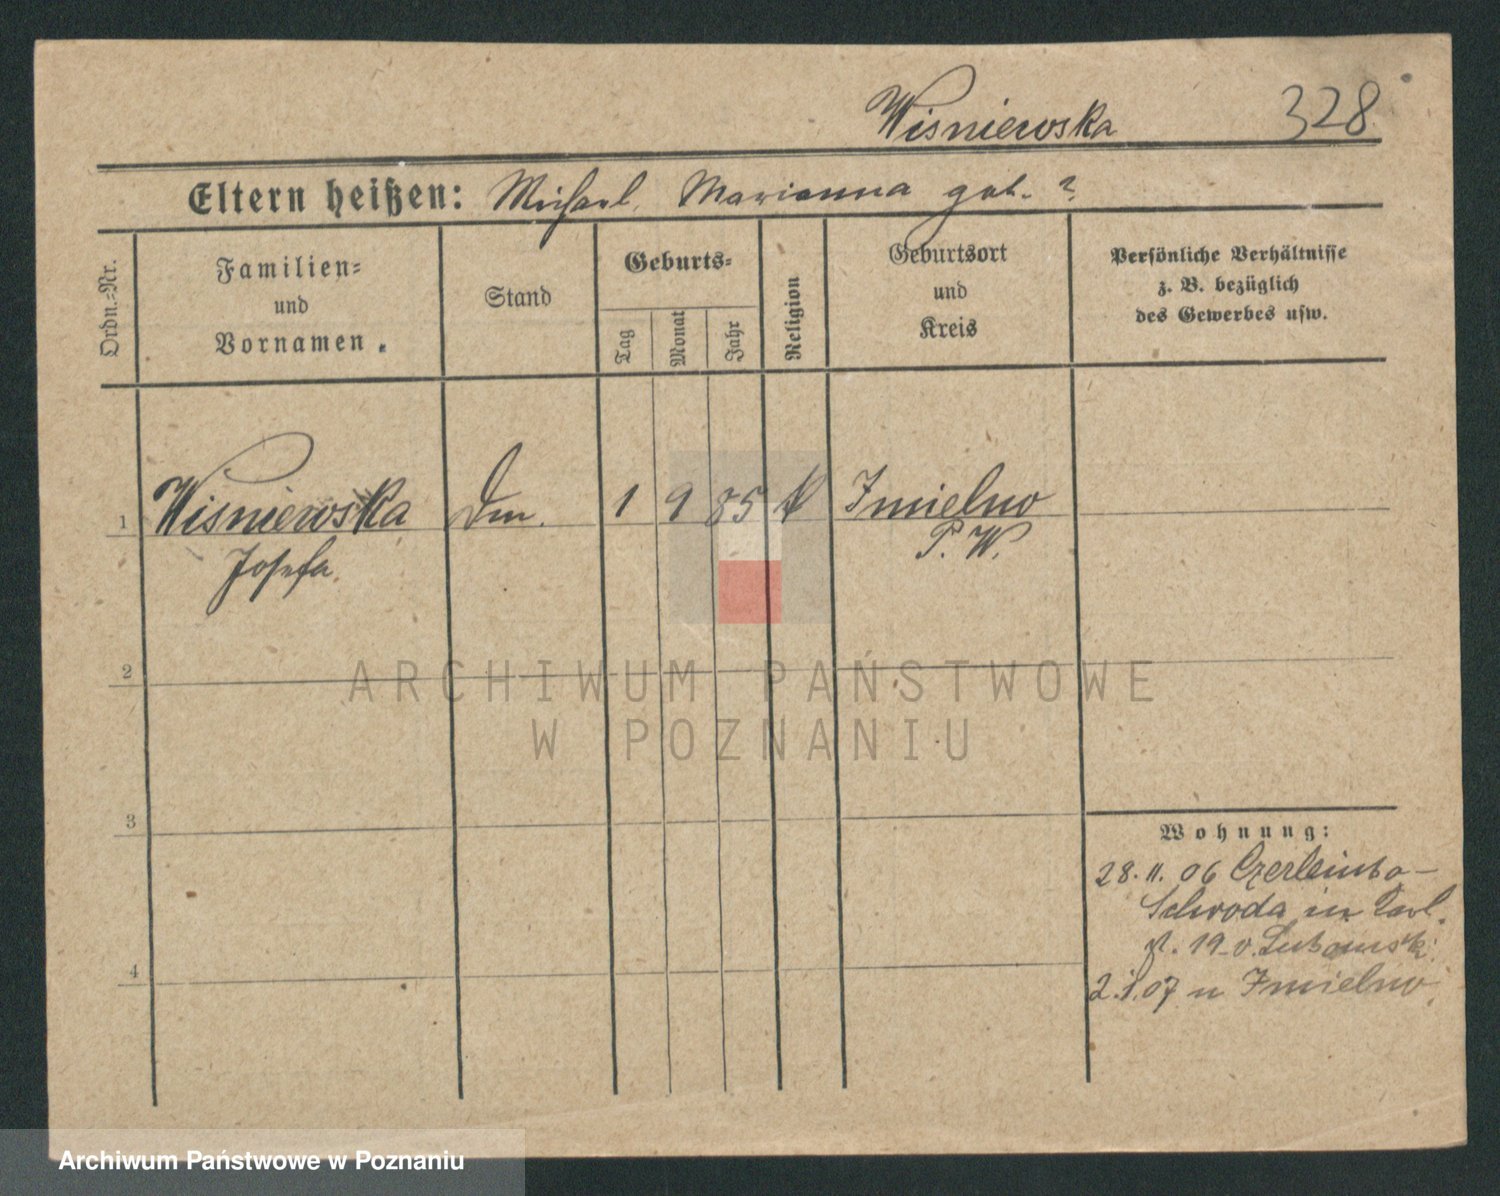 Wisniewska 328
Eltern heißen: Michael, Marianna geb. ?
Ordn.-Nr.
Familien-
und
Vornamen.
Stand
Geburts-
Tag
Monat
Jahr
Religion
Geburtsort
und
Kreis
Persönliche Verhältnisse
z. B. bezüglich
des Gewerbes usw.
1 Wisniewska Dm. 1 9 85 k Imielno
Josefa P. W.
2
3
4
Wohnung:
28. 11. 06
Schroda in
19 v.
2.1.07 n Imielno
ARCHIWUM PAŃSTWOWE
W POZNANIU
Archiwum Państwowe w Poznaniu